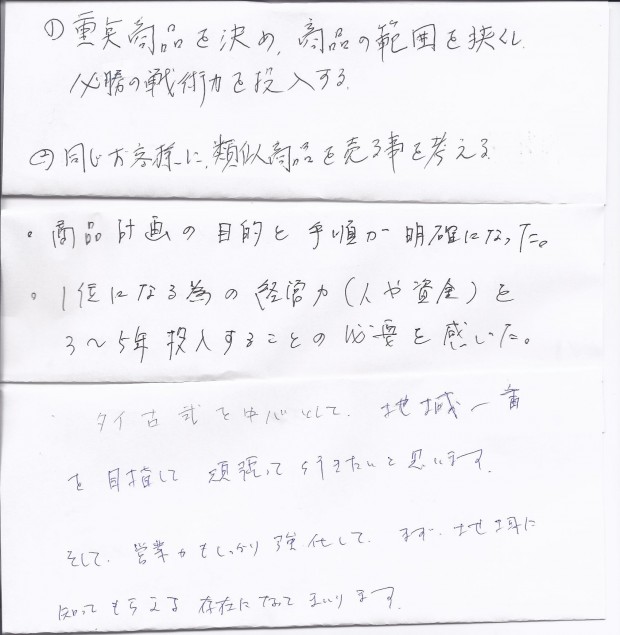 ① 重点商品を決め、商品の範囲を狭くし
必勝の戦術力を投入する
② 同じお客様に、類似商品を売る事を考える
・商品計画の目的と手順が明確になった。
・1位になる為の経営力(人や資金)を
3~5年投入することの必要を感じた。
タイ古式を中心として、地域一番
を目指して頑張って行きたいと思います。
そして、営業力もしっかり強化して、まず、地域に
知ってもらえる存在になってまいります。